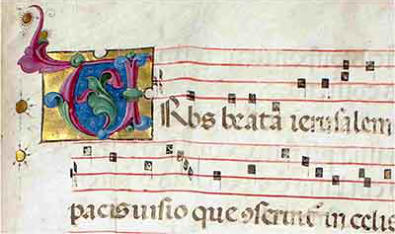 Urbs beata ierusalem
pacis uisio que ɔstruit̃ in celis